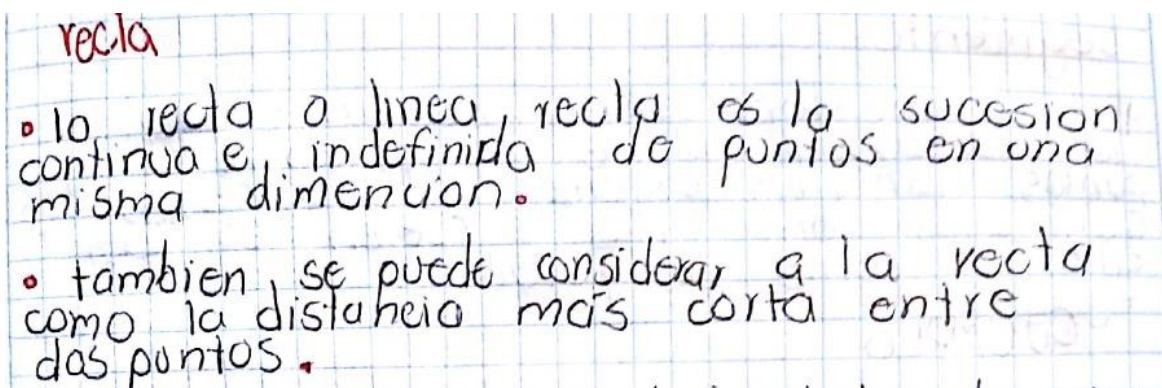 recta
• la recta o linea, recta es la sucesion
continua e, indefinida de puntos en una
misma dimencion.
• tambien, se puede considerar a la recta
como la distancia más corta entre
dos puntos.